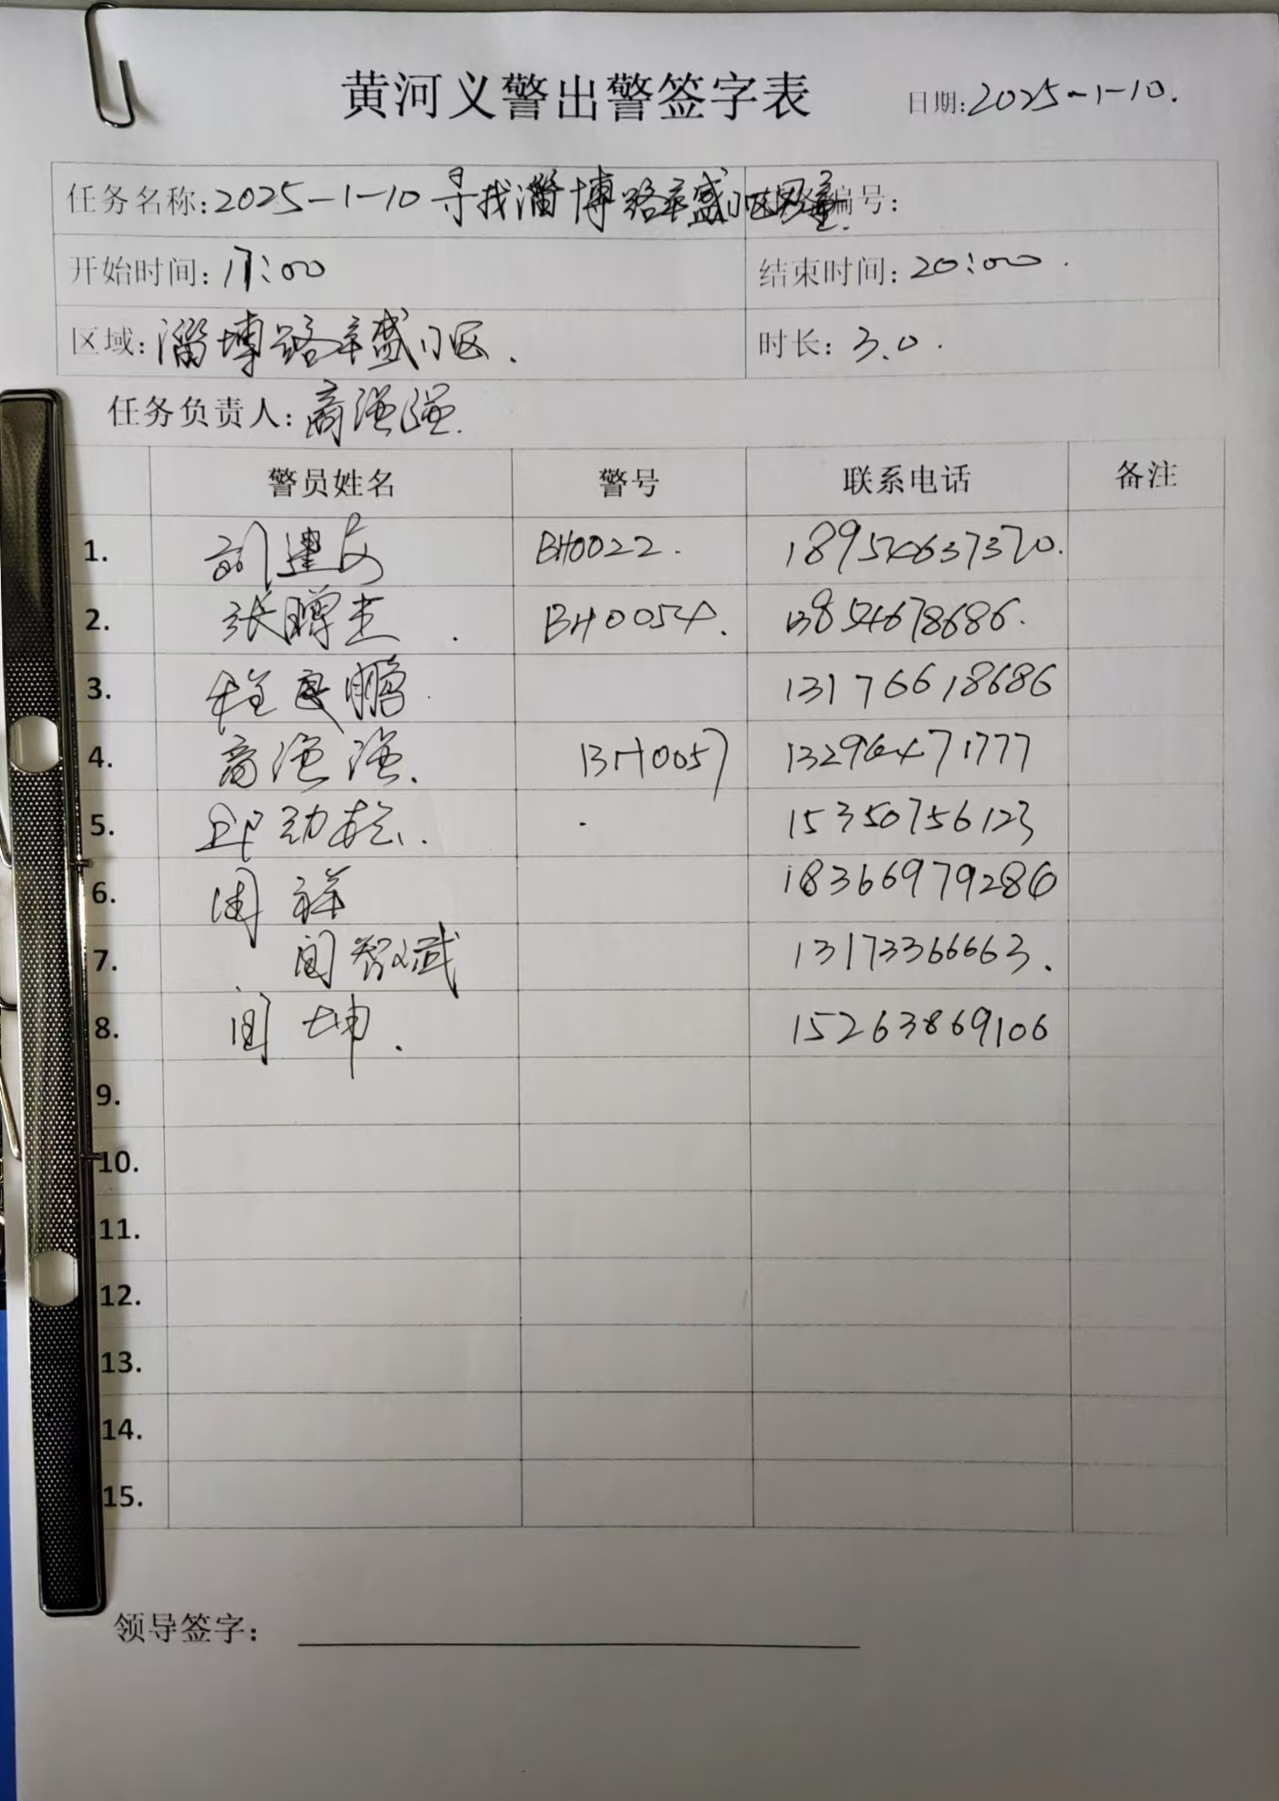 黄河义警出警签字表 日期:2025-1-10.
任务名称:2025-1-10寻找淄博路辛盛小区男童. 编号:
开始时间:17:00 结束时间:20:00.
区域:淄博路辛盛小区. 时长:3.0.
任务负责人:商强强.
警员姓名 警号 联系电话 备注
1. BH0022. 18954637370.
2. 张鹏 BH0054. 13854678686.
3. 鹏. 13176618686
4. 商强强. BH0057 13296471777
5. 邱劲松. 15350756123
6. 周祥 18366979286
7. 闫智斌 13173366663.
8. 闫坤. 15263869106
9.
10.
11.
12.
13.
14.
15.
领导签字: